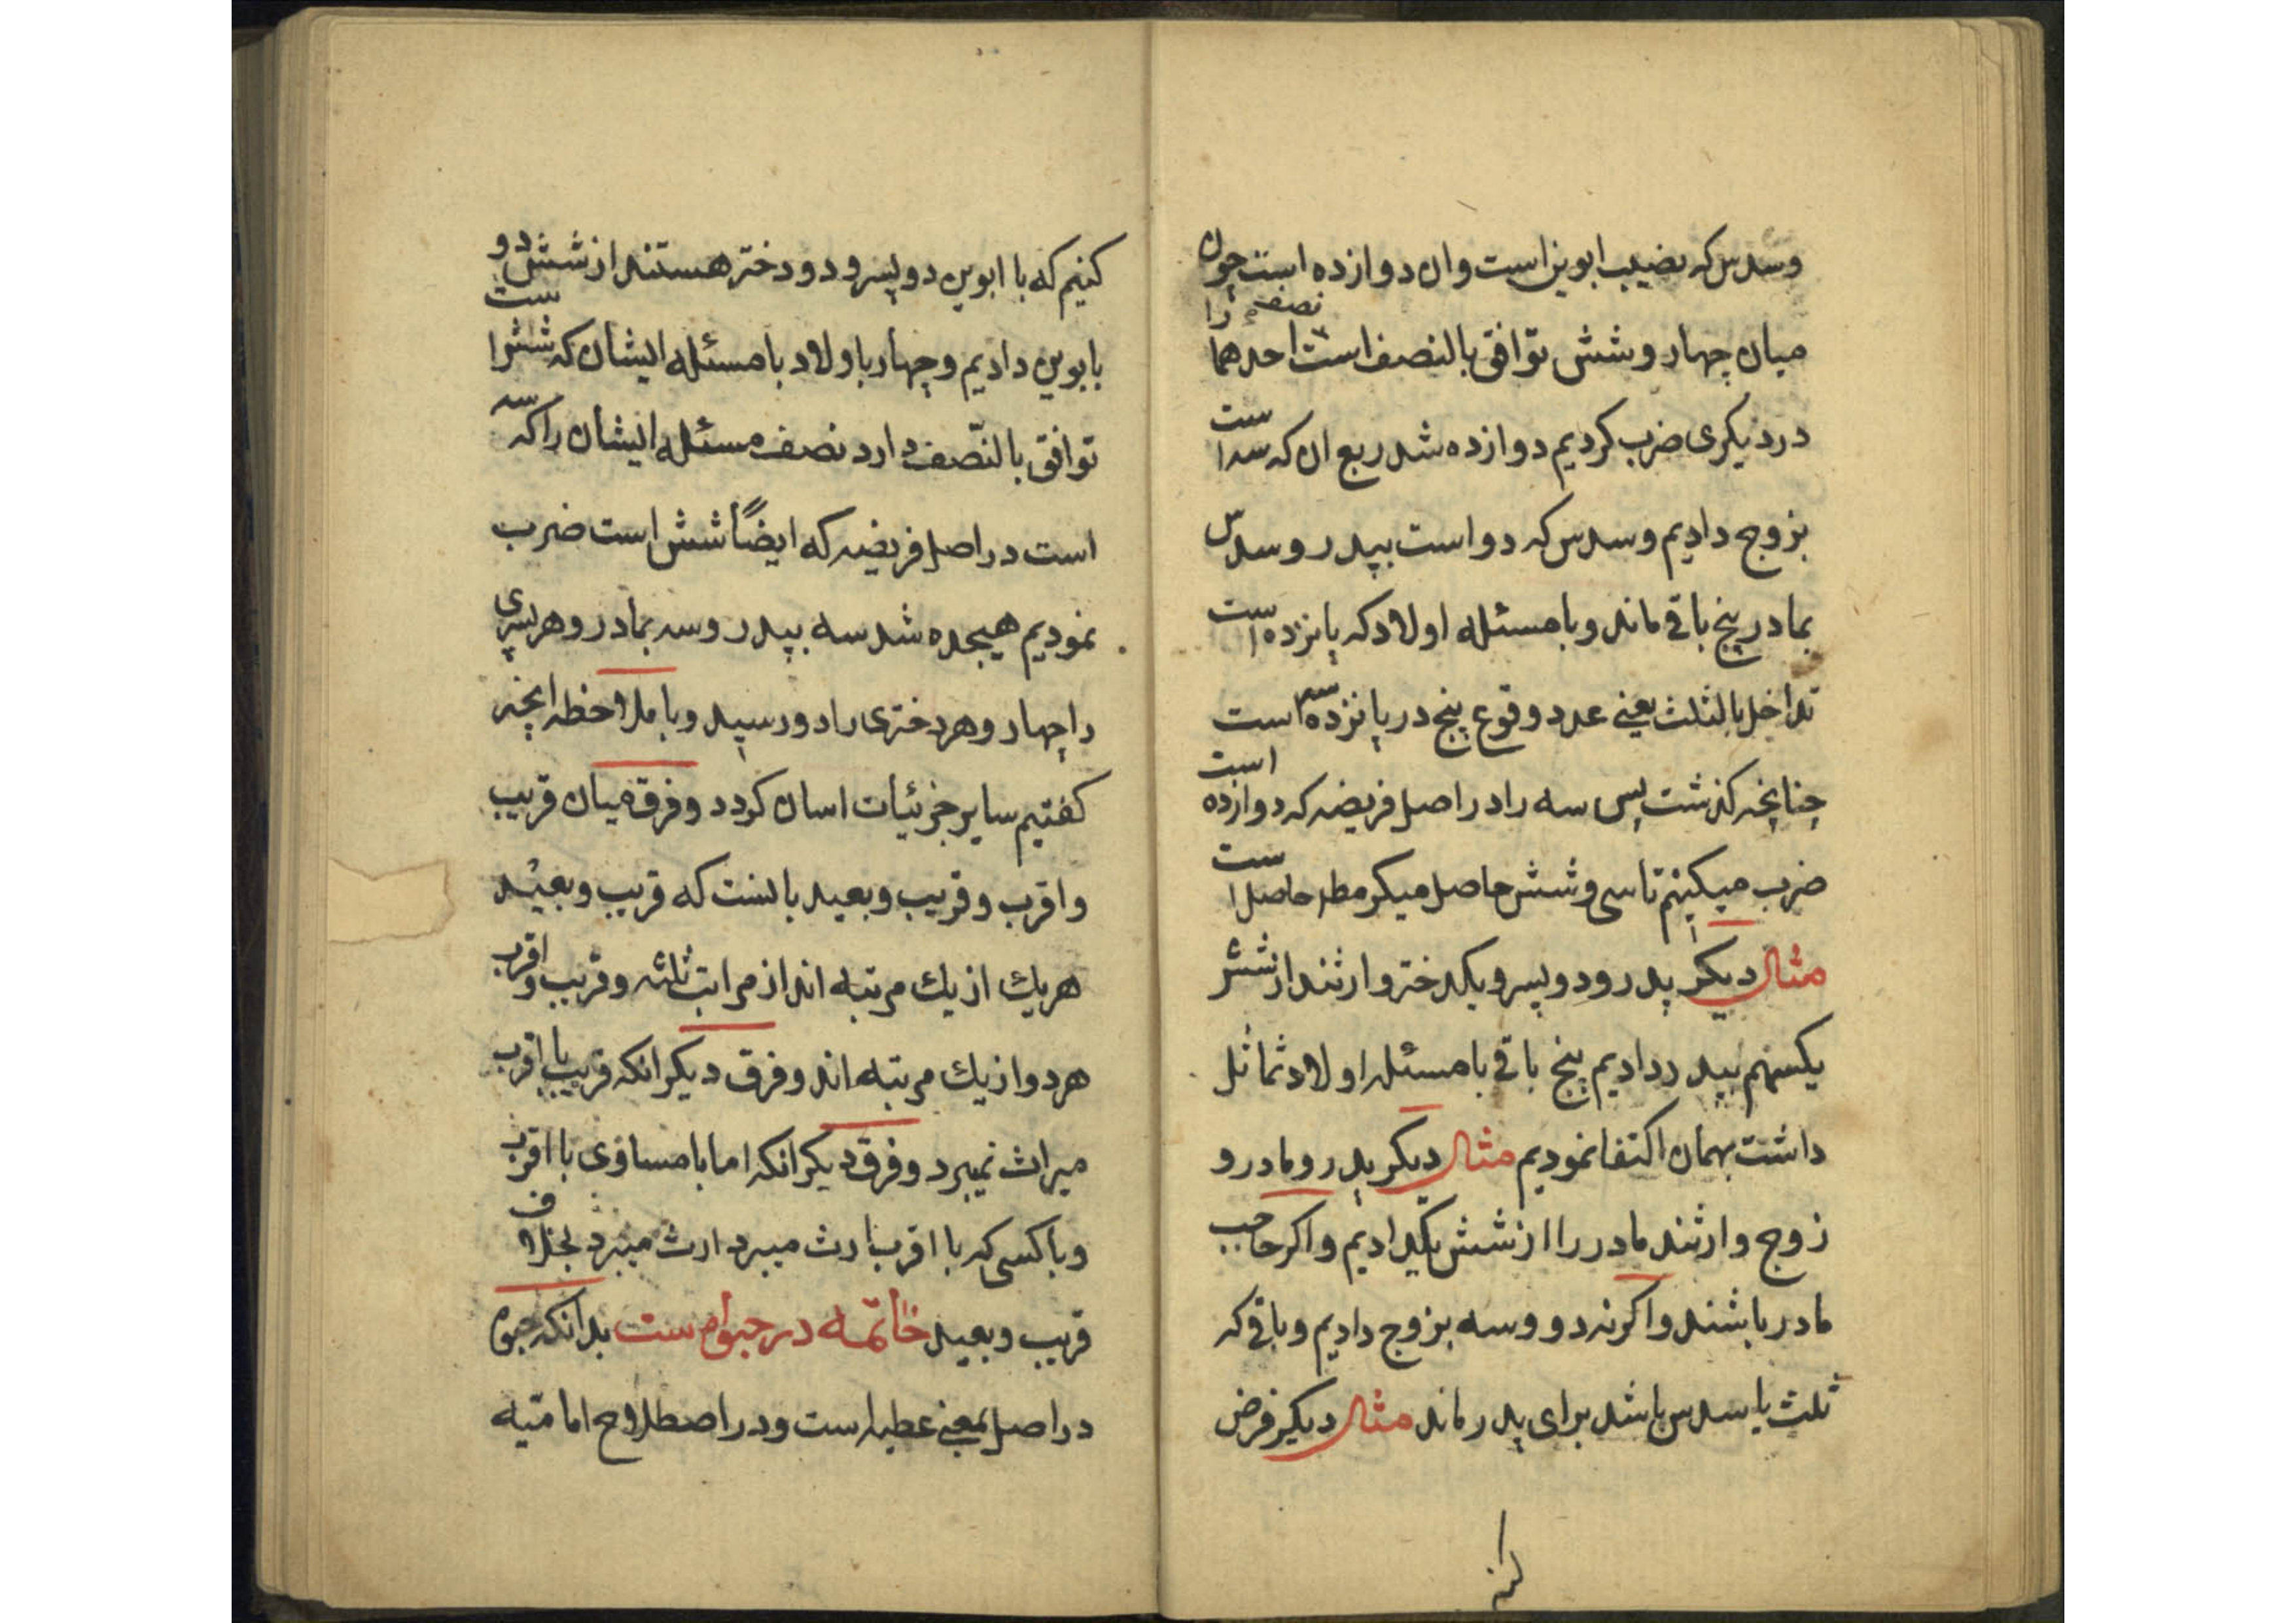 وسدس که نصیب ابوین است وان دوازده است چون
میان چهار و شش توافق بالنصف است نصف احدهما را
در دیکری ضرب کردیم دوازده شد ربع ان که سه است
بزوج دادیم وسدس که دو است بپدر وسدس
بمادر پنج باقی ماند وبا مسئله اولاد که پانزده است
تداخل بالثلث یعنی عدد وقوع پنج در پانزده سه است
چنانچه کذشت پس سه را در اصل فریضه که دوازده است
ضرب میکنیم تا سی وشش حاصل میکر مطه حاصل است
مثال دیکر پدر ودو پسر ویکدختر وارثند از شش
یکسهم بپدر دادیم پنج باقی با مسئله اولاد تماثل
داشت بهمان اکتفا نمودیم مثال دیکر پدر ومادر و
زوج وارثند مادر را از شش یکدادیم واکر حاجب
مادر باشند واکر نه دو وسه بزوج دادیم وباقی که
ثلث یا سدس باشد برای پدر ماند مثال دیکر فرض
کنیم
کنیم که با ابوین دو پسر و دو دختر هستند از شش دو
بابوین دادیم و چهار باولاد با مسئله ایشان که شش است
توافق بالنّصف دارد نصف مسئله ایشان را که سه
است در اصل فریضه که ایضاً شش است ضرب
نمودیم هیجده شد سه بپدر وسه بمادر وهر پسری
را چهار وهر دختری را دو رسید وبا ملاحظه انچه
کفتیم سایر جزئیات اسان کردد وفرق میان قریب
واقرب وقریب وبعید بالنست که قریب وبعید
هریک از یک مرتبه اند از مراتب ثلثه وقریب واقرب
هر دو از یک مرتبه اند وفرق دیکر انکه قریب با اقرب
میراث نمیبرد وفرق دیکر انکه اما با مساوی با اقرب
وبا کسی که با اقرب ارث میبرد ارث میبرد بخلاف
قریب وبعید خاتمه در حبوه است بدانکه حبوه
در اصل بمعنی عطیه است ودر اصطلاح امامیّه